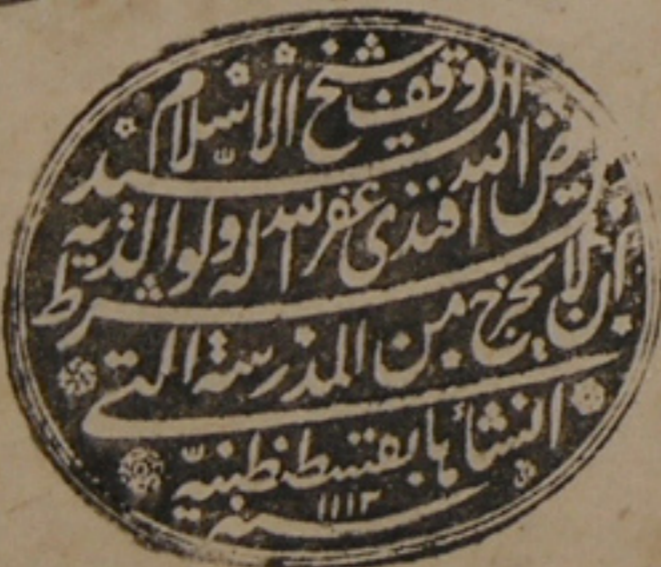 وقف شيخ الاسلام السيد
فيض الله افندى غفر الله له ولوالديه
بشرط ان لا يخرج من المدرسة التى
انشأها بقسطنطنية
سنه ١١١٣